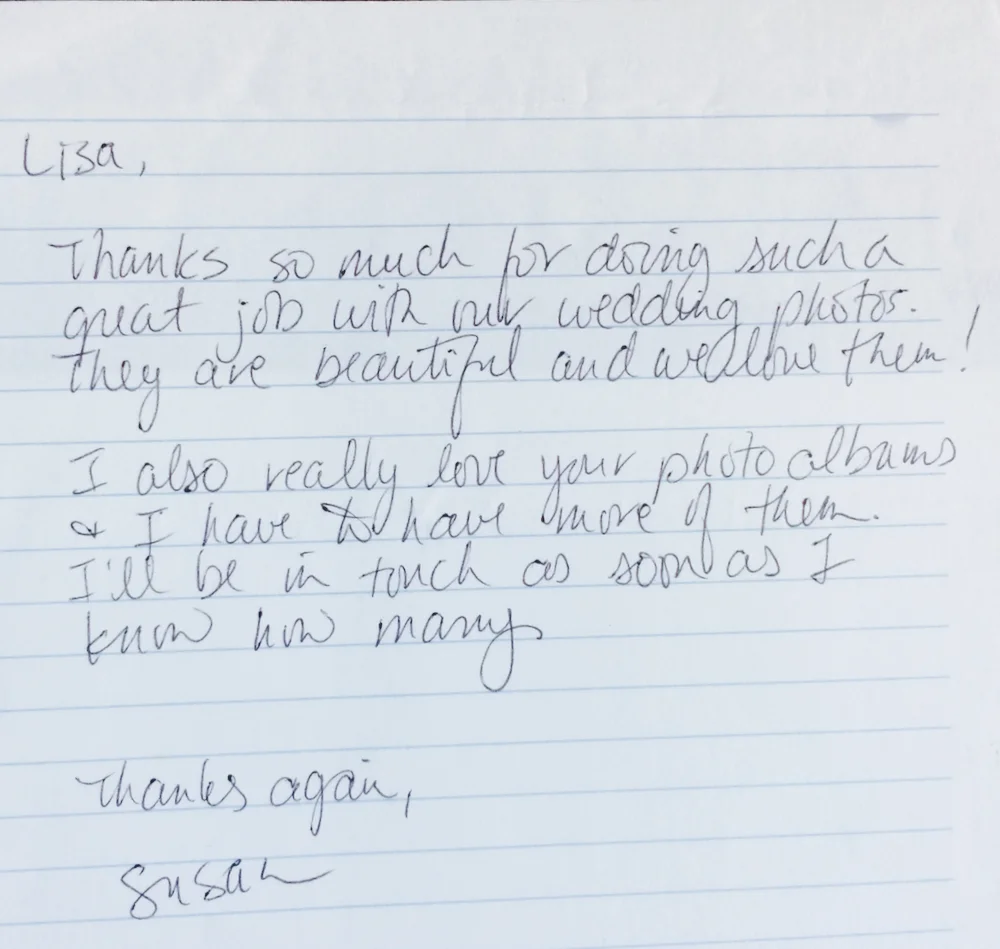 Lisa,
Thanks so much for doing such a
great job with our wedding photos.
They are beautiful and we love them!
I also really love your photo albums
& I have to have more of them.
I'll be in touch as soon as I
know how many
Thanks again,
Susan